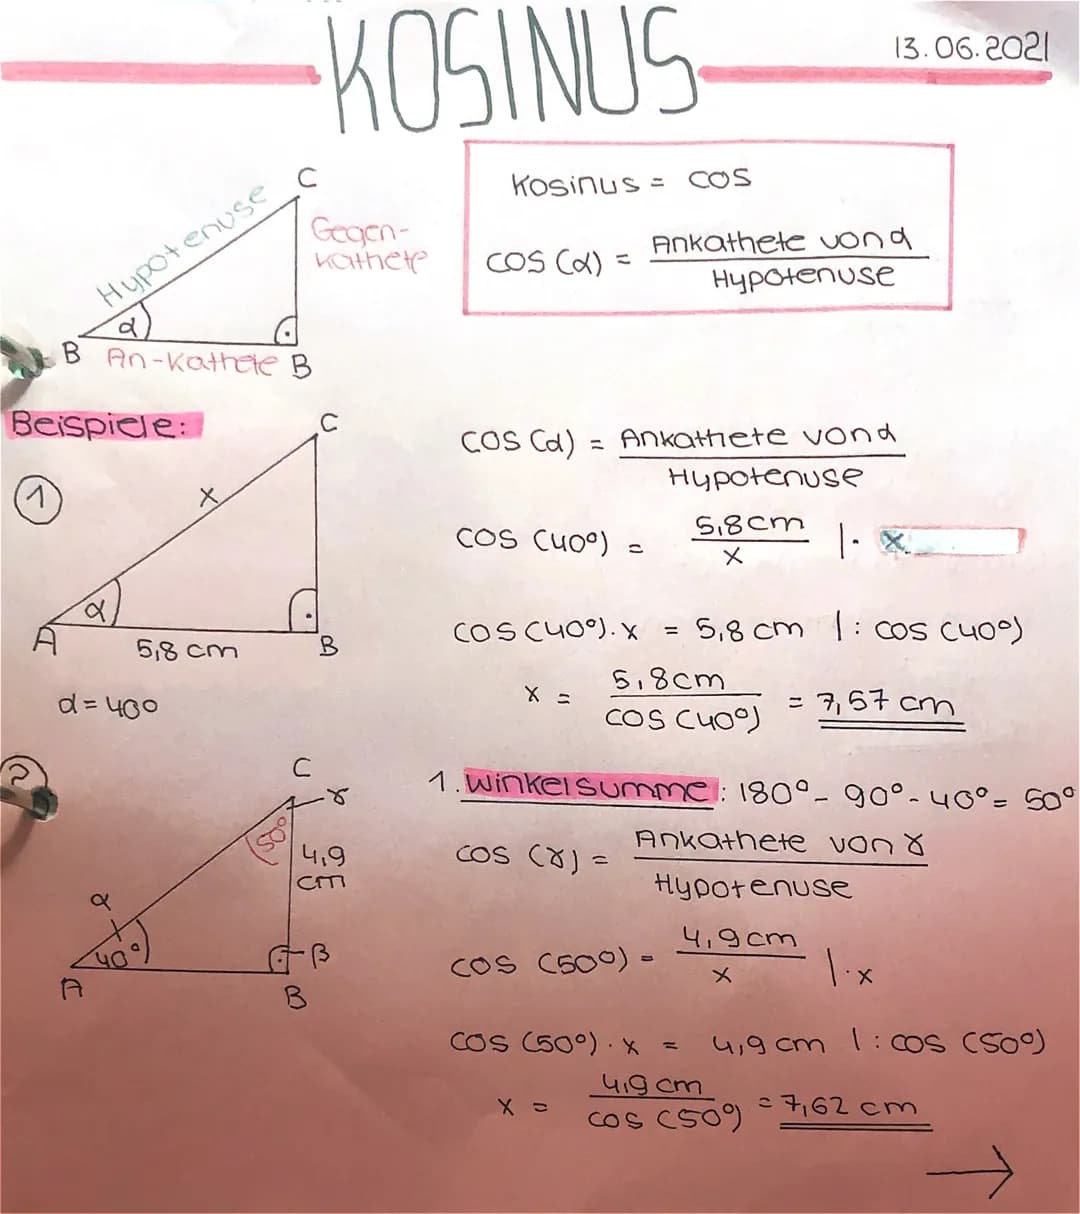 KOSINUS
13.06.2021
C
Hypotenuse
Gegen-
kathete
α
B An-Kathete B
Kosinus = cos
cos (α) = Ankathete von α
Hypotenuse
Beispiele:
1
C
x
α
A
5,8 cm
B
α = 40°
cos (α) = Ankathete von α
Hypotenuse
cos (40°) = 5,8cm
x
|· x
cos (40°) · x = 5,8 cm |: cos (40°)
x = 5,8cm
cos (40°)
= 7,57 cm
2
C
γ
50°
4,9
cm
α
40°
β
A
B
1. Winkelsumme: 180° - 90° - 40° = 50°
cos (γ) = Ankathete von γ
Hypotenuse
cos (50°) = 4,9cm
x
|· x
cos (50°) · x = 4,9 cm |: cos (50°)
x = 4,9 cm
cos (50°)
= 7,62 cm